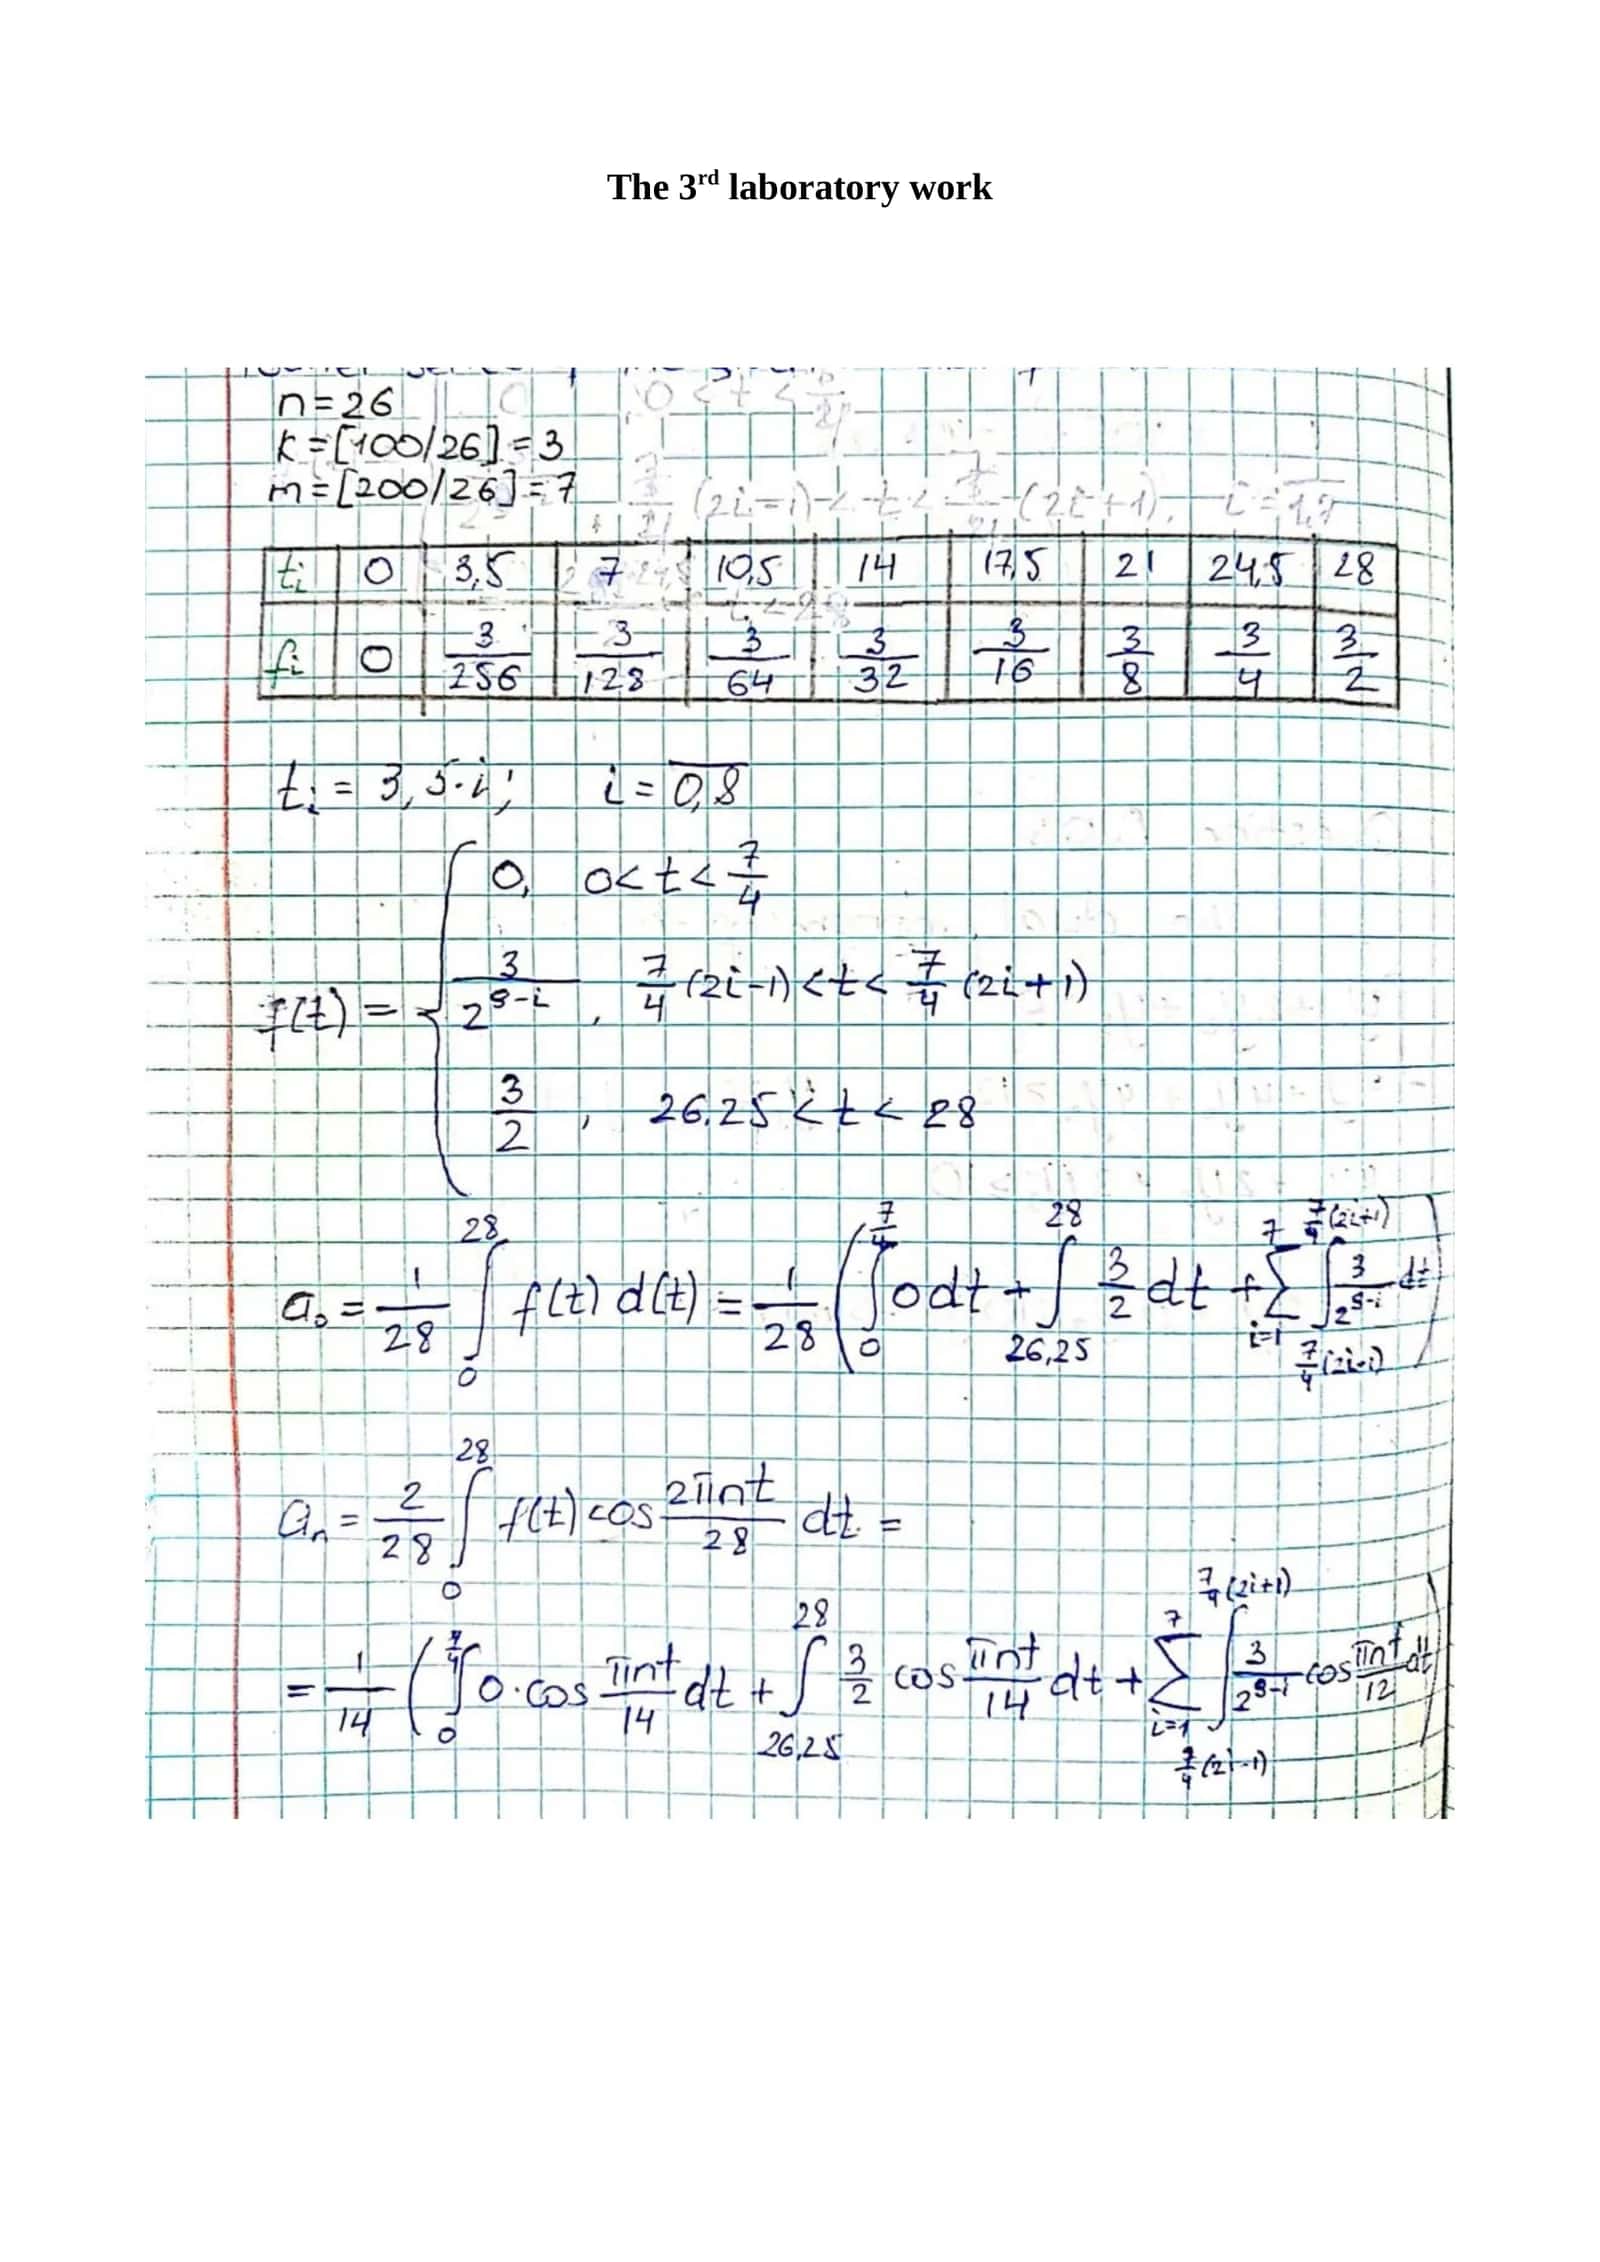 The 3rd laboratory work
n=26
k=[100/26]=3
m=[200/26]=7
ti 0 3,5 7 10,5 14 17,5 21 24,5 28
fi 0 3/256 3/128 3/64 3/32 3/16 3/8 3/4 3/2
ti = 3,5·i; i = 0,8
0, 0<t<7/4
f(t) = { 3/2^(9-i), 7/4(2i-1)<t<7/4(2i+1)
3/2, 26.25<t<28
a₀ = 1/28 ∫₀²⁸ f(t) d(t) = 1/28 ( ∫₀^(7/4) 0dt + ∫_(26,25)^28 3/2 dt + Σ_(i=1)^7 ∫_(7/4(2i-1))^(7/4(2i+1)) 3/2^(9-i) dt )
aₙ = 2/28 ∫₀²⁸ f(t) cos 2πnt/28 dt =
= 1/14 ( ∫₀^(7/4) 0·cos πnt/14 dt + ∫_(26,25)^28 3/2 cos πnt/14 dt + Σ_(i=1)^7 ∫_(7/4(2i-1))^(7/4(2i+1)) 3/2^(9-i) cos πnt/12 dt )